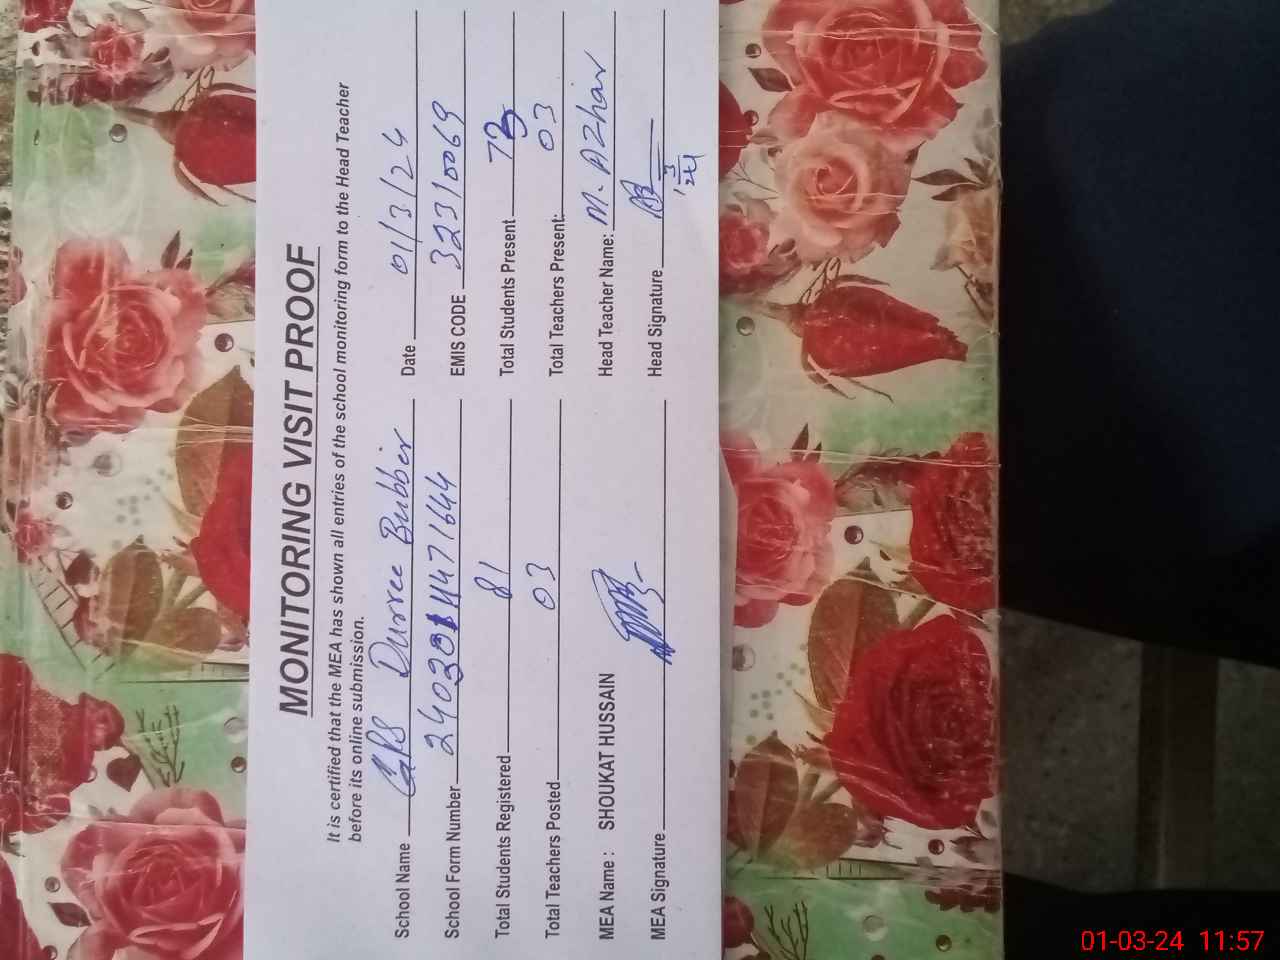 MONITORING VISIT PROOF
It is certified that the MEA has shown all entries of the school monitoring form to the Head Teacher
before its online submission.
School Name GPS Durree Bubber Date 01/3/24
School Form Number 2403011471644 EMIS CODE 32310069
Total Students Registered 81 Total Students Present 73
Total Teachers Posted 03 Total Teachers Present: 03
MEA Name : SHOUKAT HUSSAIN Head Teacher Name: M. Azhar
MEA Signature Head Signature
1/3/24
01-03-24 11:57